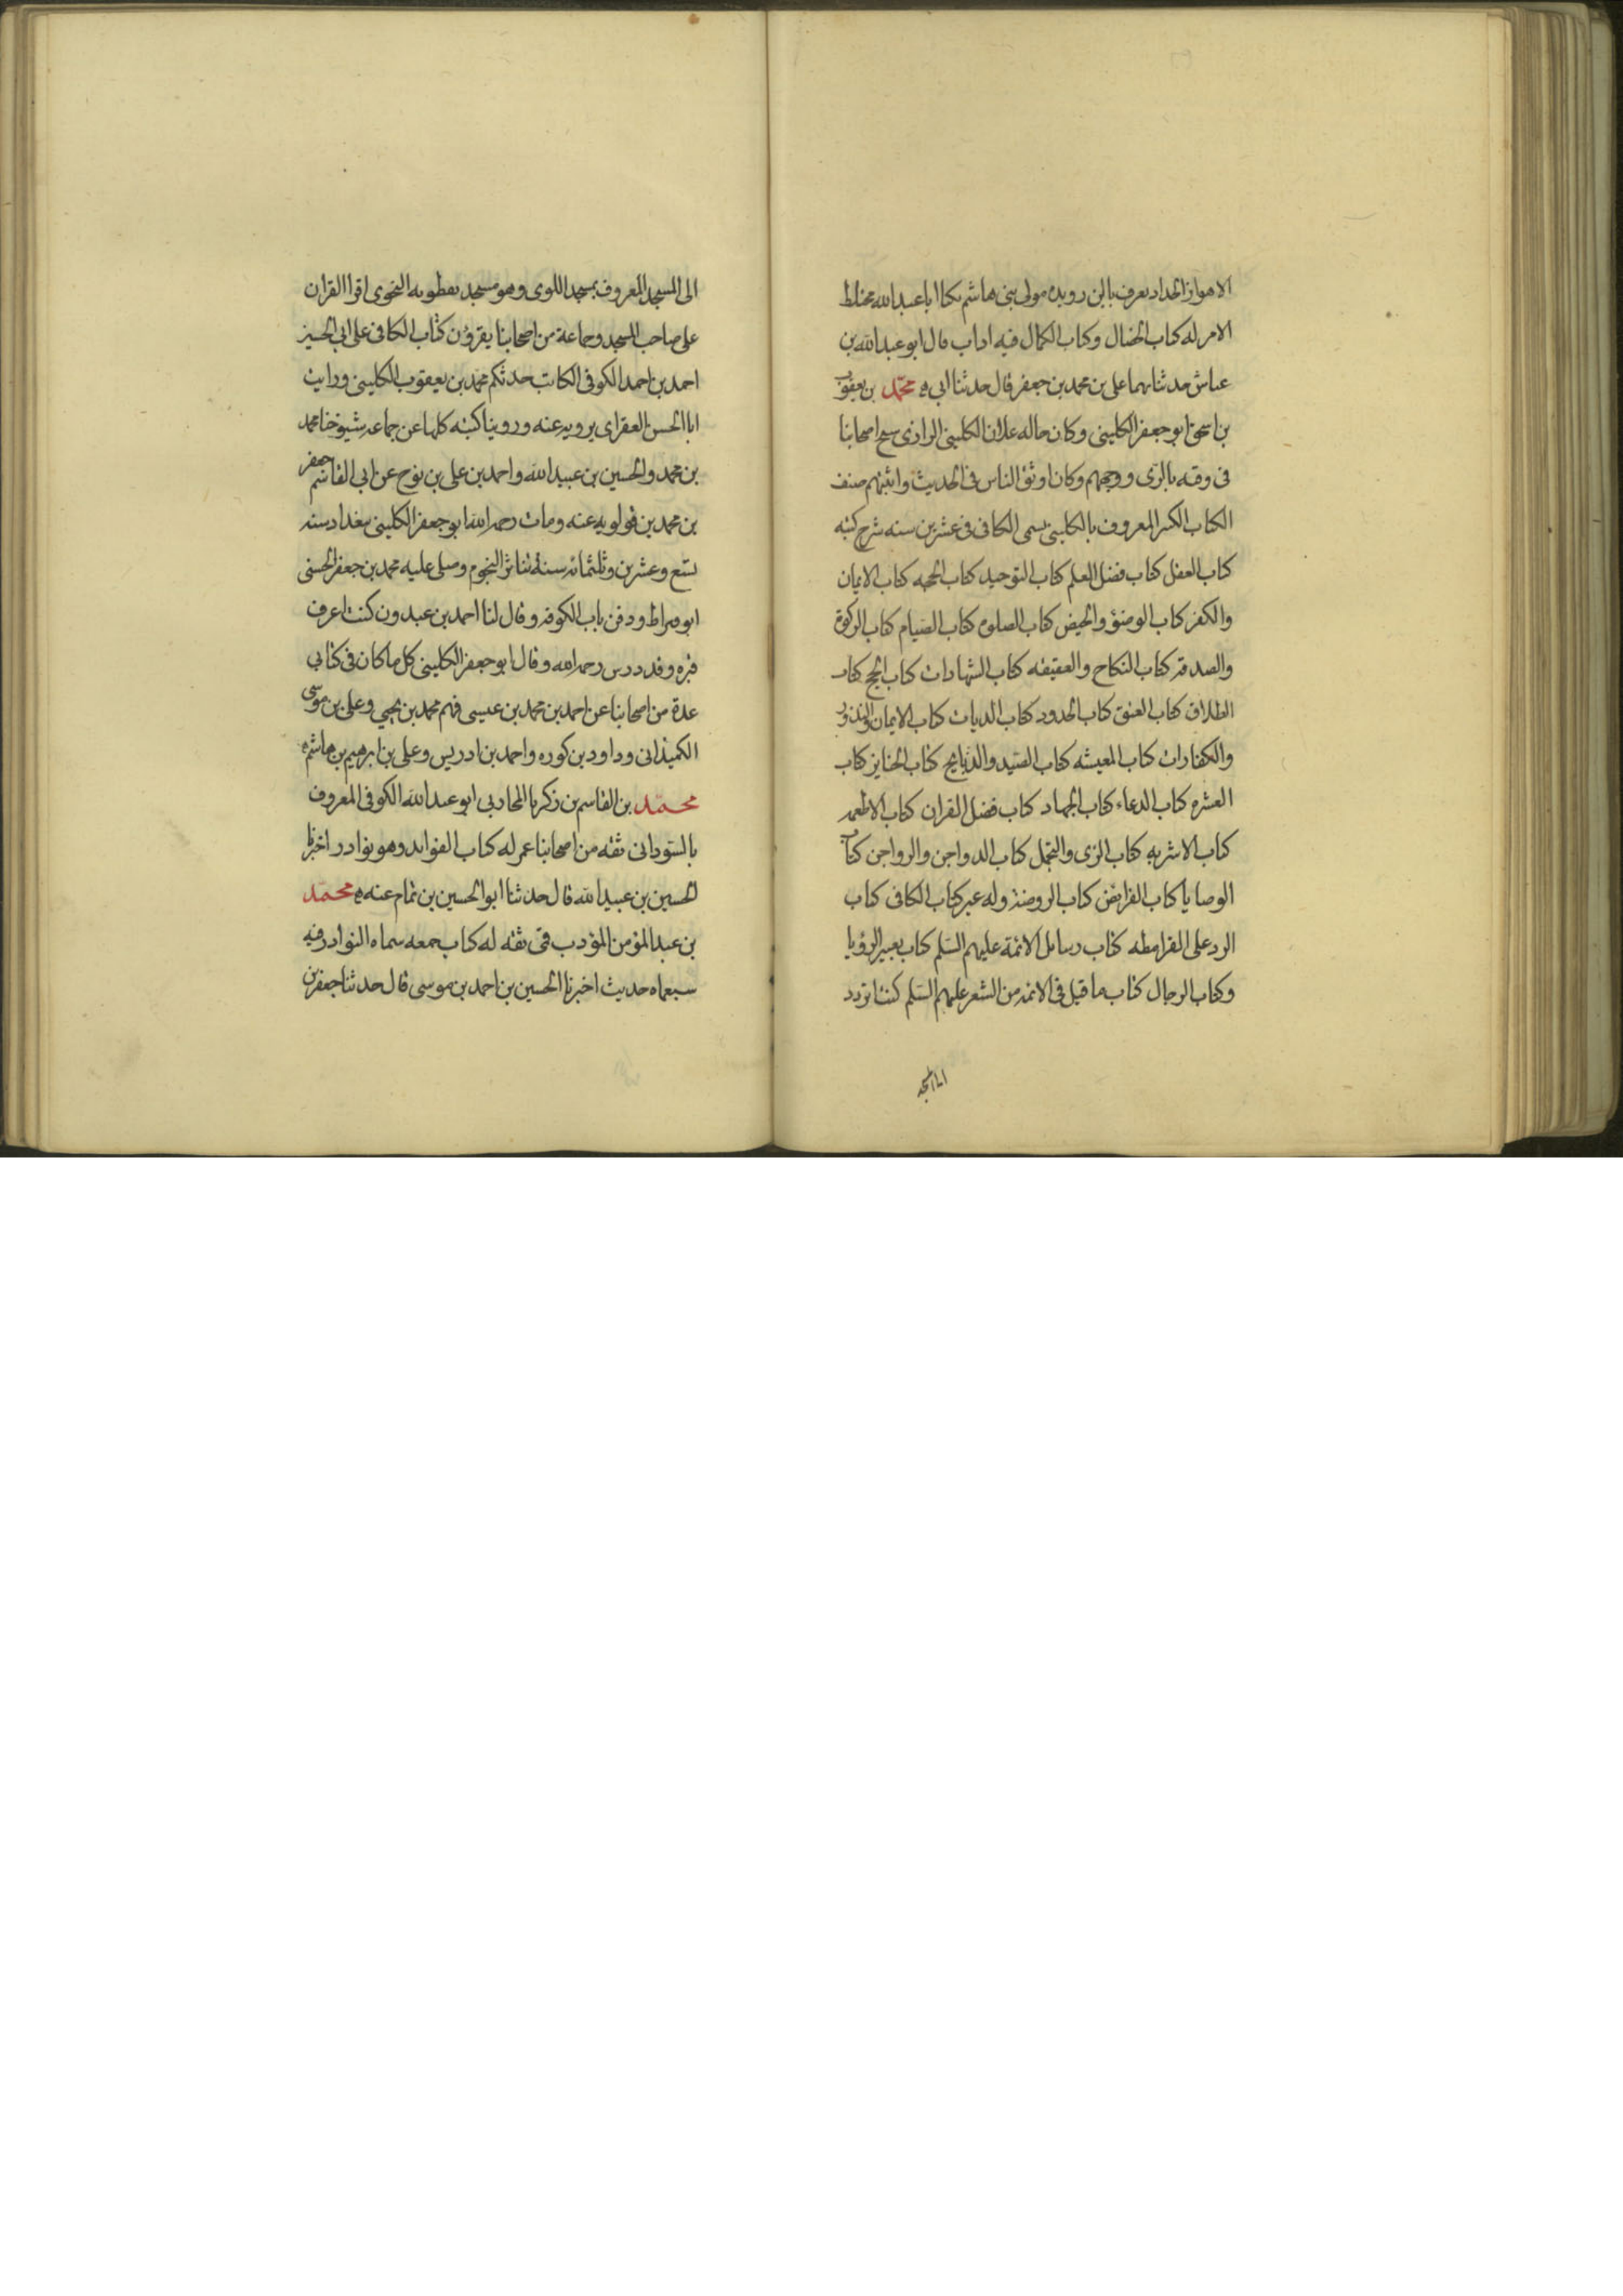 الاهواز الحداد يعرف بابن رويده مولى بنى هاشم يكنا ابا عبدالله مختلط
الامر له كتاب الخصال وكتاب الكمال فيه اداب قال ابو عبدالله بن
عباش حدثنا بهما على بن محمد بن جعفر قال حدثنا ابى ه محمد بن يعقوب
بن اسحق ابو جعفر الكلينى وكان خاله علان الكلينى الرازى شيخ اصحابنا
فى وقته بالرى ووجههم وكان اوثق الناس فى الحديث واثبتهم صنف
الكتاب الكبير المعروف بالكلينى يسمى الكافى فى عشرين سنه شرح كتبه
كتاب العقل كتاب فضل العلم كتاب التوحيد كتاب الحجه كتاب الايمان
والكفر كتاب الوضوء والحيض كتاب الصلوة كتاب الصيام كتاب الزكوة
والصدقه كتاب النكاح والعقيقه كتاب الشهادات كتاب الحج كتاب
الطلاق كتاب العتق كتاب الحدود كتاب الديات كتاب الايمان والنذور
والكفارات كتاب المعيشه كتاب الصيد والذبايح كتاب الجنايز كتاب
العشره كتاب الدعاء كتاب الجهاد كتاب فضل القران كتاب الاطعمه
كتاب الاشربه كتاب الزى والتجمل كتاب الدواجن والرواجن كتاب
الوصايا كتاب الفرايض كتاب الروضة وله غير كتاب الكافى كتاب
الرد على القرامطه كتاب رسايل الائمة عليهم السلم كتاب تعبير الرؤيا
وكتاب الرجال كتاب ما قيل فى الائمه من الشعر عليهم السلم كنت اتردد
الى المسجد
الى المسجد المعروف بمسجد اللولوى وهو مسجد نفطويه النحوى اقرا القران
على صاحب المسجد وجماعة من اصحابنا يقرؤن كتاب الكافى على ابى الحسين
احمد بن احمد الكوفى الكاتب حدثكم محمد بن يعقوب الكلينى ورايت
ابا الحسن العقراى يرويه عنه وروينا كتبه كلها عن جماعه شيوخنا محمد
بن محمد والحسين بن عبيد الله واحمد بن على بن نوح عن ابى القاسم جعفر
بن محمد بن قولويه عنه ومات رحمه الله ابو جعفر الكلينى ببغداد سنه
تسع وعشرين وثلثمائه سنة تناثر النجوم وصلى عليه محمد بن جعفر الحسنى
ابو قيراط ودفن بباب الكوفه وقال لنا احمد بن عبدون كنت اعرف
قبره وقد درس رحمه الله وقال ابو جعفر الكلينى كل ما كان فى كتابى
عدة من اصحابنا عن احمد بن محمد بن عيسى فهم محمد بن يحيى وعلى بن موسى
الكميذانى وداود بن كوره واحمد بن ادريس وعلى بن ابرهيم بن هاشم ه
محمد بن القاسم بن زكريا المحاربى ابو عبدالله الكوفى المعروف
بالسودانى ثقه من اصحابنا عمر له كتاب الفوايد وهو نوادر اخبرنا
الحسين بن عبيد الله قال حدثنا ابو الحسين بن تمام عنه ه محمد
بن عبدالمؤمن المؤدب قمى ثقه له كتاب جمعه سماه النوادر فيه
سبعماه حديث اخبرنا الحسين بن احمد بن موسى قال حدثنا جعفر بن